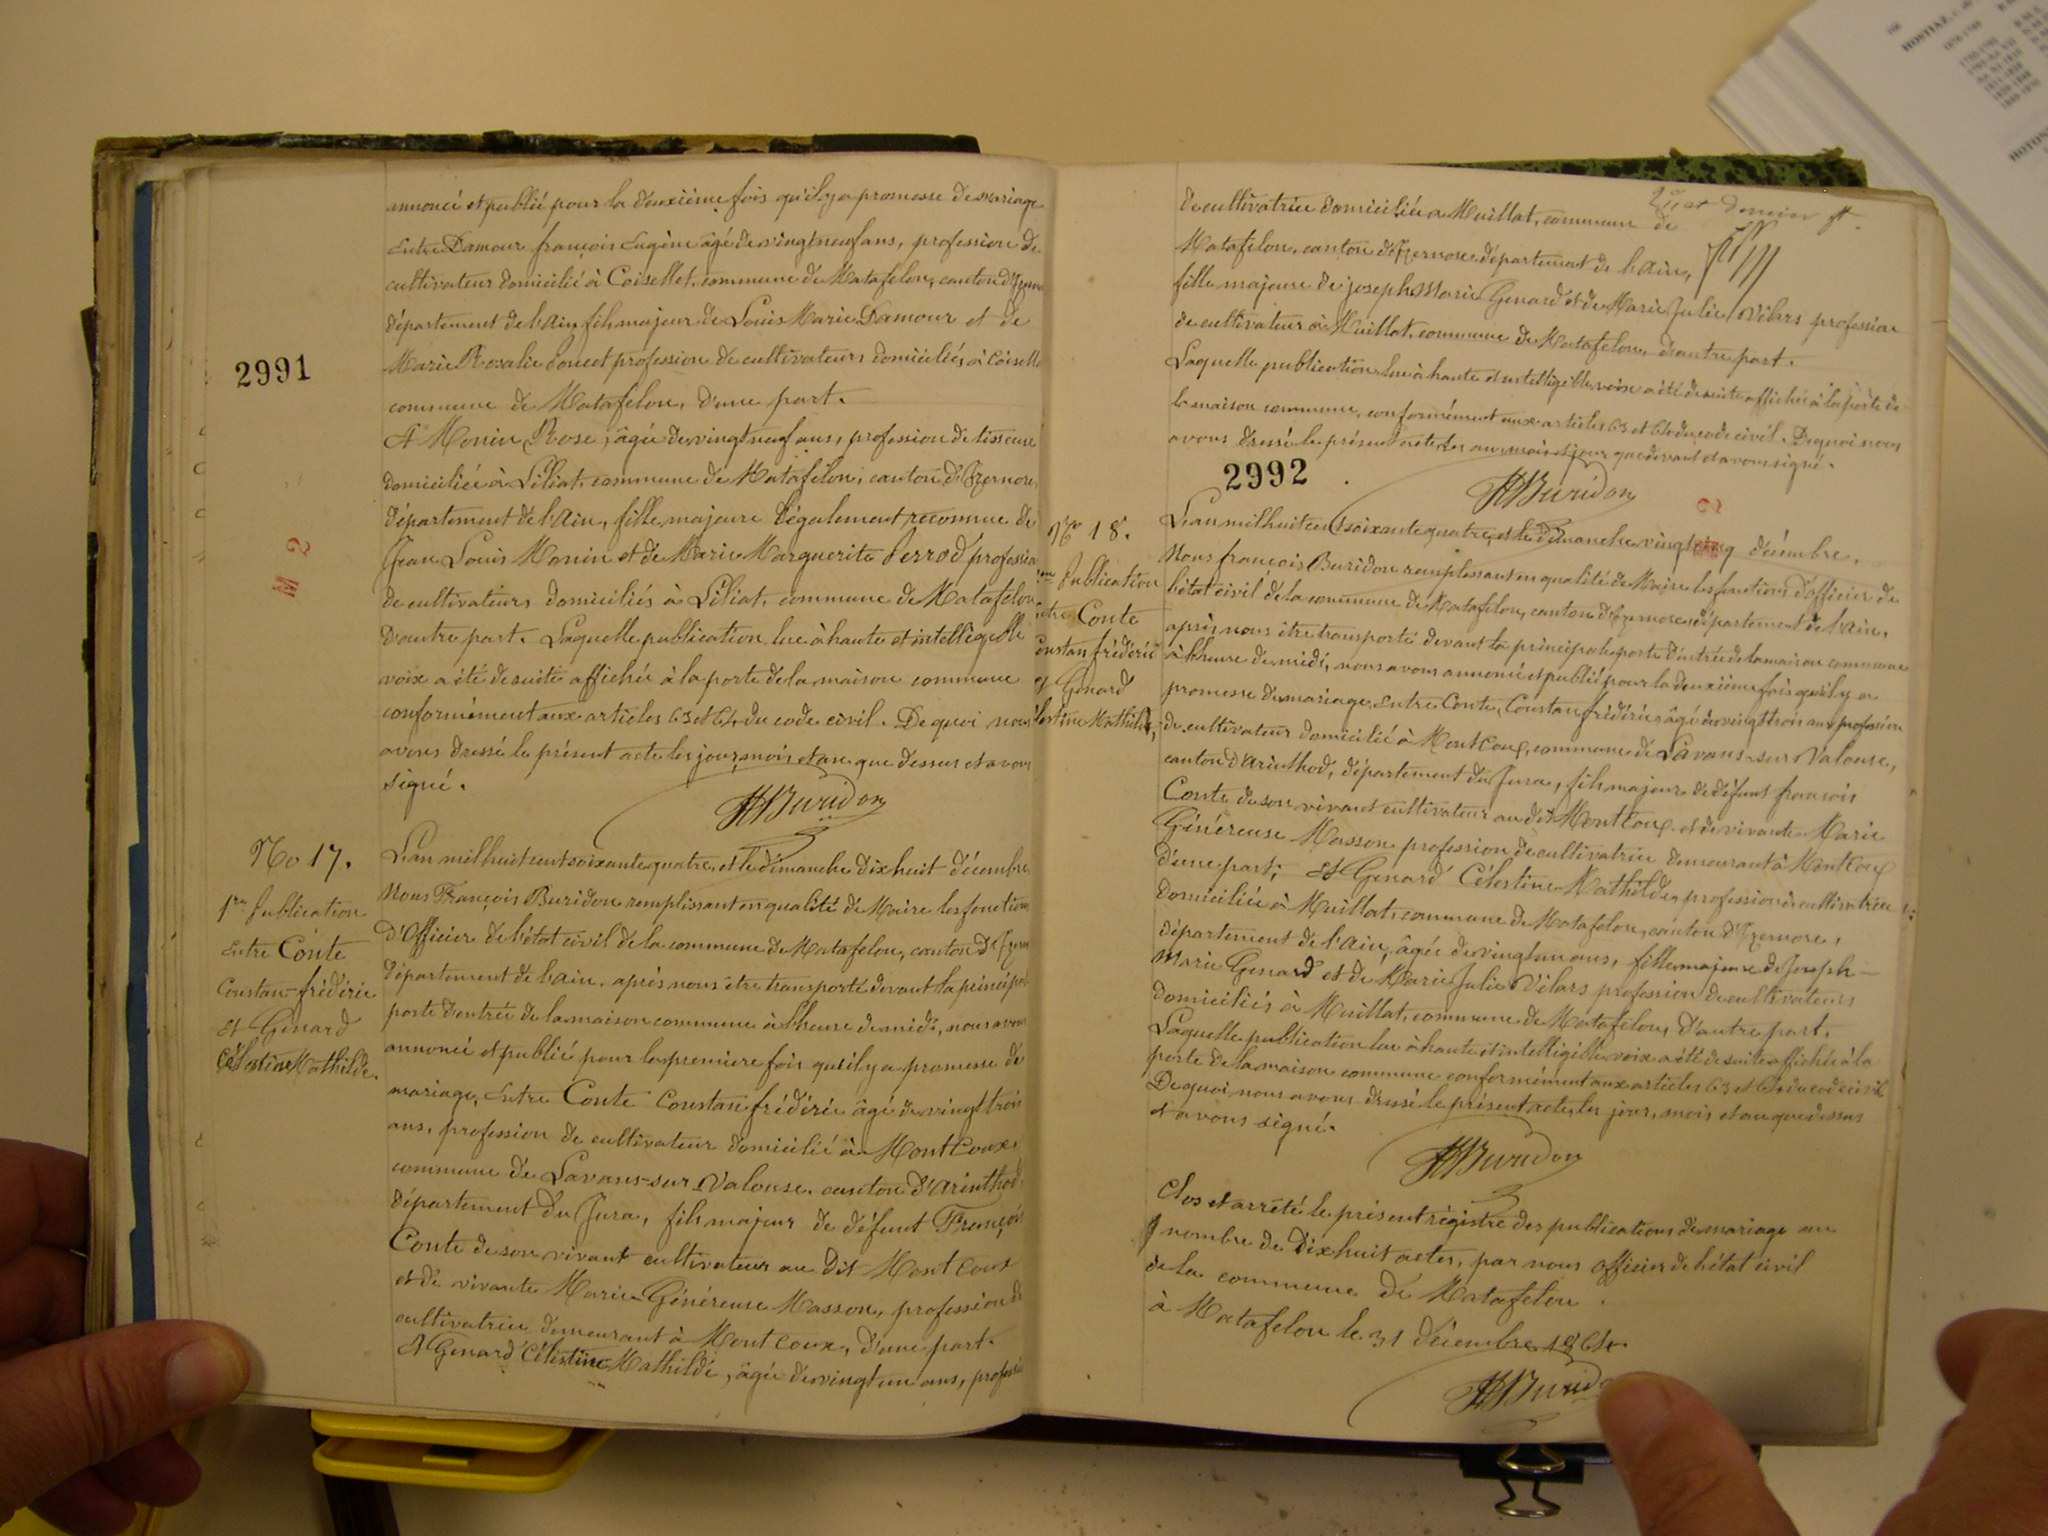 2991
annoncé et publié pour la deuxième fois qu'il y a promesse de mariage
Entre Damour françois Eugène âgé de vingt neuf ans, profession de
cultivateur domicilié à Coisellet, commune de Matafelon, canton d'Izernore
département de l'Ain, fils majeur de Louis Marie Damour et de
Marie Rosalie profession de cultivateurs domiciliés à Coisellet
commune de Matafelon, d'une part.
Et Monin Rose, âgée de vingt neuf ans, profession de tisseuse
domiciliée à Siliat, commune de Matafelon, canton d'Izernore,
département de l'Ain, fille majeure légalement reconnue de
Jean Louis Monin et de Marie Marguerite Perrod profession
de cultivateurs domiciliés à Siliat, commune de Matafelon
d'autre part. Laquelle publication lue à haute et intelligible
voix a été de suite affichée à la porte de la maison commune
conformément aux articles 63 et 64 du code civil. De quoi nous
avons dressé le présent acte les jour, mois et an que dessus et avons
signé.
Buridon
No 17.
1re Publication
Entre Conte
Constan-frédéric
et Genard
Célestine Mathilde.
L'an mil huit cent soixante quatre, et le dimanche dix huit décembre
Nous François Buridon remplissant en qualité de Maire les fonctions
d'Officier de l'état civil de la commune de Matafelon, canton d'Izernore
département de l'ain, après nous être transporté devant la principale
porte d'entrée de la maison commune à l'heure de midi, nous avons
annoncé et publié pour la premiere fois qu'il y a promesse de
mariage, Entre Conte Constan frédéric âgé de vingt trois
ans, profession de cultivateur domicilié à Montcoux,
commune de Lavans-sur-Valouse, canton d'Arinthod,
département du Jura, fils majeur de défunt François
Conte de son vivant cultivateur au dit Montcoux
et de vivante Marie-Généreuse Masson, profession de
cultivatrice demeurant à Montcoux, d'une part.
Et Genard Célestine Mathilde, âgée de vingt un ans, profession
de cultivatrice domiciliée a Muillat, commune de
Matafelon, canton d'Izernore département de l'Ain,
fille majeure de joseph Marie Genard et de Marie Julie Vilars profession
de cultivateur à Muillat, commune de Matafelon, d'autre part.
Laquelle publication lue à haute et intelligible voix a été de suite affichée à la porte de
la maison commune, conformément aux articles 63 et 64 du code civil. De quoi nous
avons dressé le présent acte les an, mois et jour que devant et avons signé.
Buridon
2992
No 18.
Publication
Conte
Constan frédéric
et Genard
Célestine Mathilde
L'an mil huit cent soixante quatre, et le dimanche vingt cinq décembre,
Nous françois Buridon remplissant en qualité de Maire les fonctions d'officier de
l'état civil de la commune de Matafelon, canton d'Izernore département de l'ain,
après nous être transporté devant la principale porte d'entrée de la maison commune
à l'heure de midi, nous avons annoncé et publié pour la deuxième fois qu'il y a
promesse de mariage, Entre Conte, Constan frédéric, âgé de vingt trois ans profession
de cultivateur domicilié à Montcoux, commune de Lavans-sur Valouse,
canton d'Arinthod, département du Jura, fils majeur de défunt françois
Conte de son vivant cultivateur au dit Montcoux et de vivante Marie
Généreuse Masson profession de cultivatrice demeurant à Montcoux
d'une part; et Genard Célestine Mathilde, profession de cultivatrice
domiciliée à Muillat, commune de Matafelon, canton d'Izernore,
département de l'Ain, âgée de vingt un ans, fille majeure de Joseph-
Marie Genard et de Marie Julie Vilars profession de cultivateurs
domiciliés à Muillat, commune de Matafelon, d'autre part.
Laquelle publication lue à haute et intelligible voix a été de suite affichée à la
porte de la maison commune conformément aux articles 63 et 64 du code civil
De quoi nous avons dressé le présent acte, les jour, mois et an que dessus
et avons signé.
Buridon
Clos et arrêté le présent régistre des publications de mariage au
nombre de dix huit actes, par nous officier de l'état civil
de la commune de Matafelon.
à Matafelon le 31 décembre 1864.
Buridon